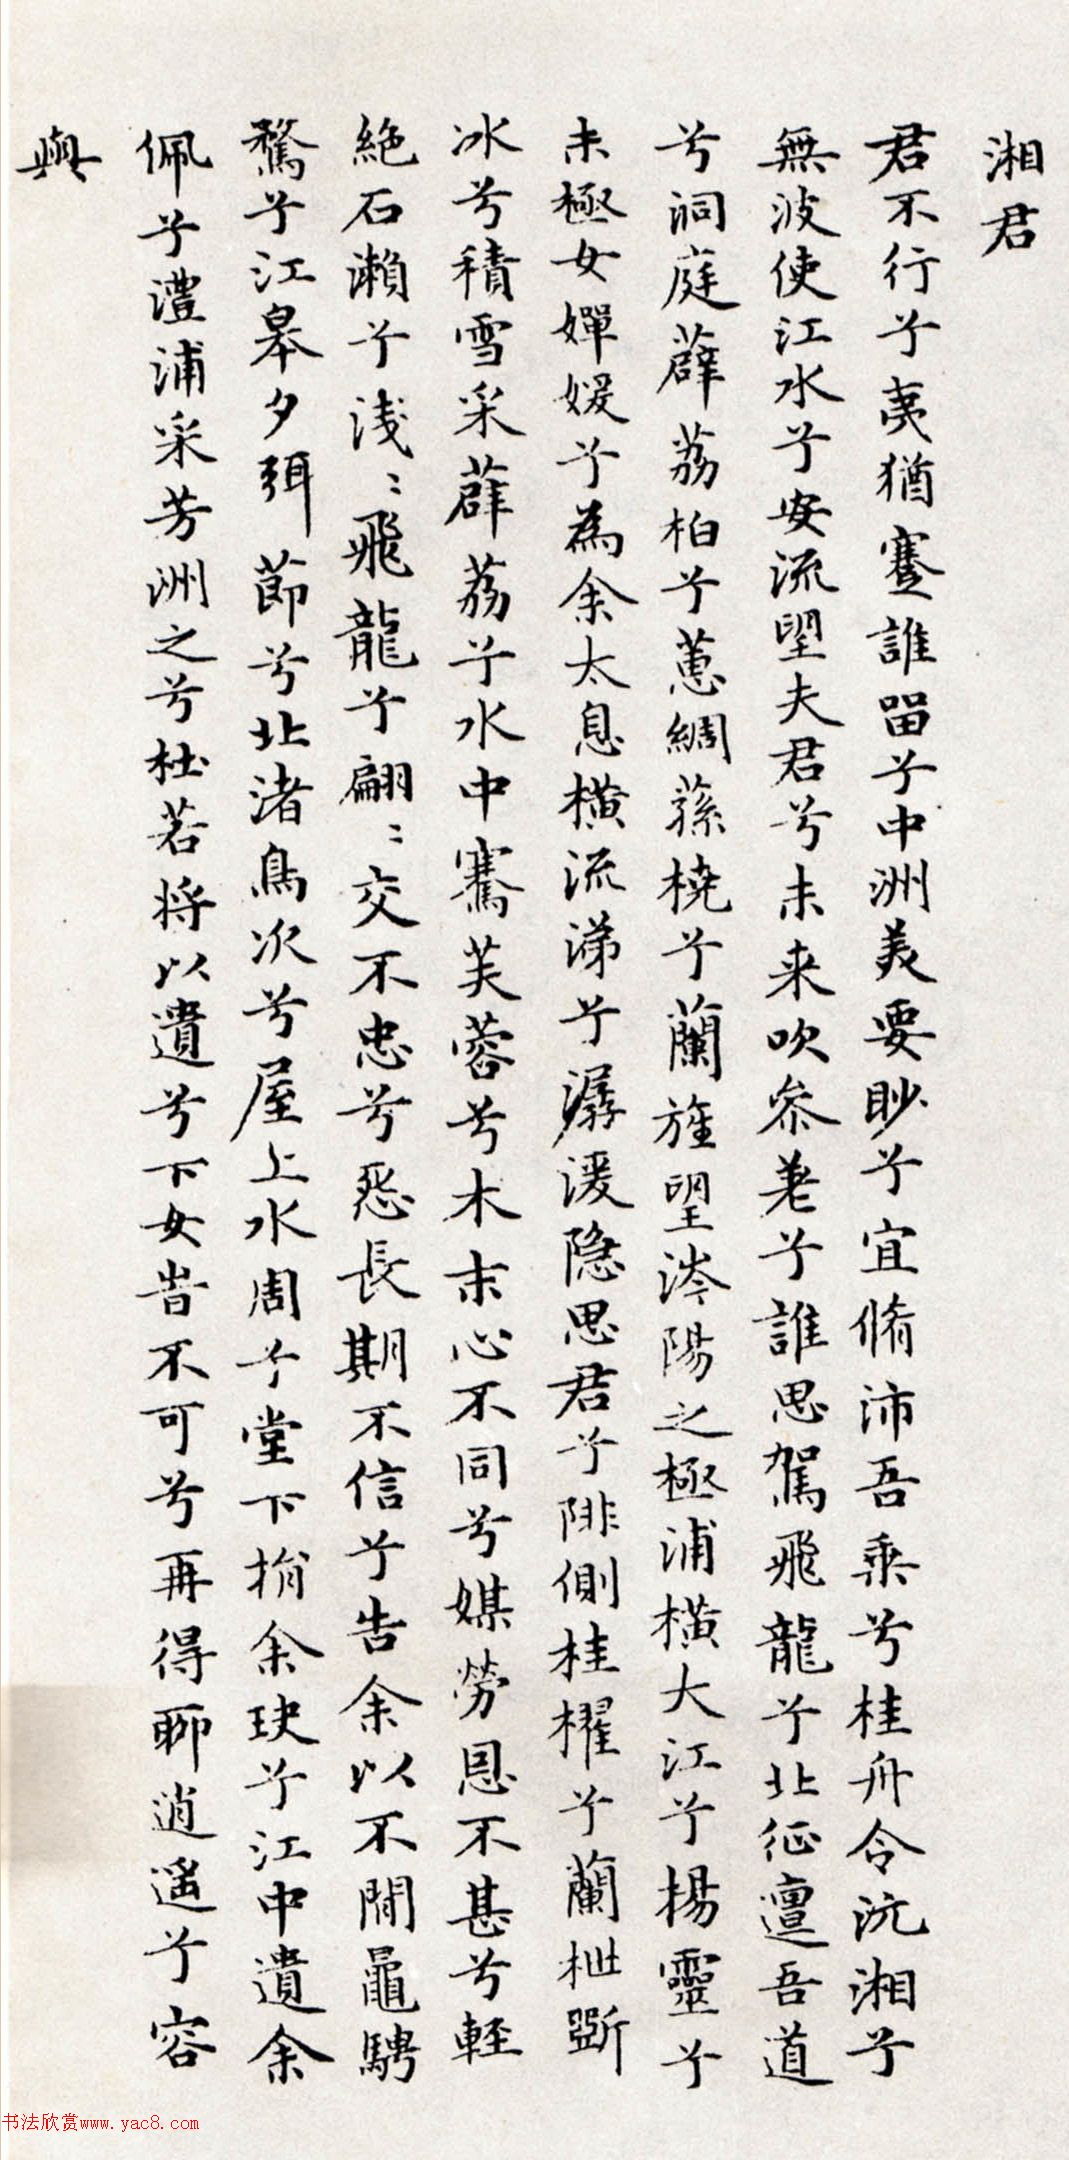 湘君
君不行兮夷猶蹇誰留兮中洲美要眇兮宜脩沛吾乘兮桂舟令沅湘兮
無波使江水兮安流望夫君兮未来吹參差兮誰思駕飛龍兮北征邅吾道
兮洞庭薜荔柏兮蕙綢蓀橈兮蘭旌望涔陽之極浦橫大江兮楊靈兮
未極女嬋媛兮為余太息橫流涕兮潺湲隐思君兮陫側桂櫂兮蘭枻斲
冰兮積雪采薜荔兮水中騫芙蓉兮木末心不同兮媒勞恩不甚兮軽
絶石瀨兮浅〻飛龍兮翩〻交不忠兮怨長期不信兮告余以不閒鼂騁
騖兮江皋夕弭節兮北渚鳥次兮屋上水周兮堂下捐余玦兮江中遺余
佩兮澧浦采芳洲之兮杜若将以遺兮下女旹不可兮再得聊逍遥兮容
與
书法欣赏www.yac8.com